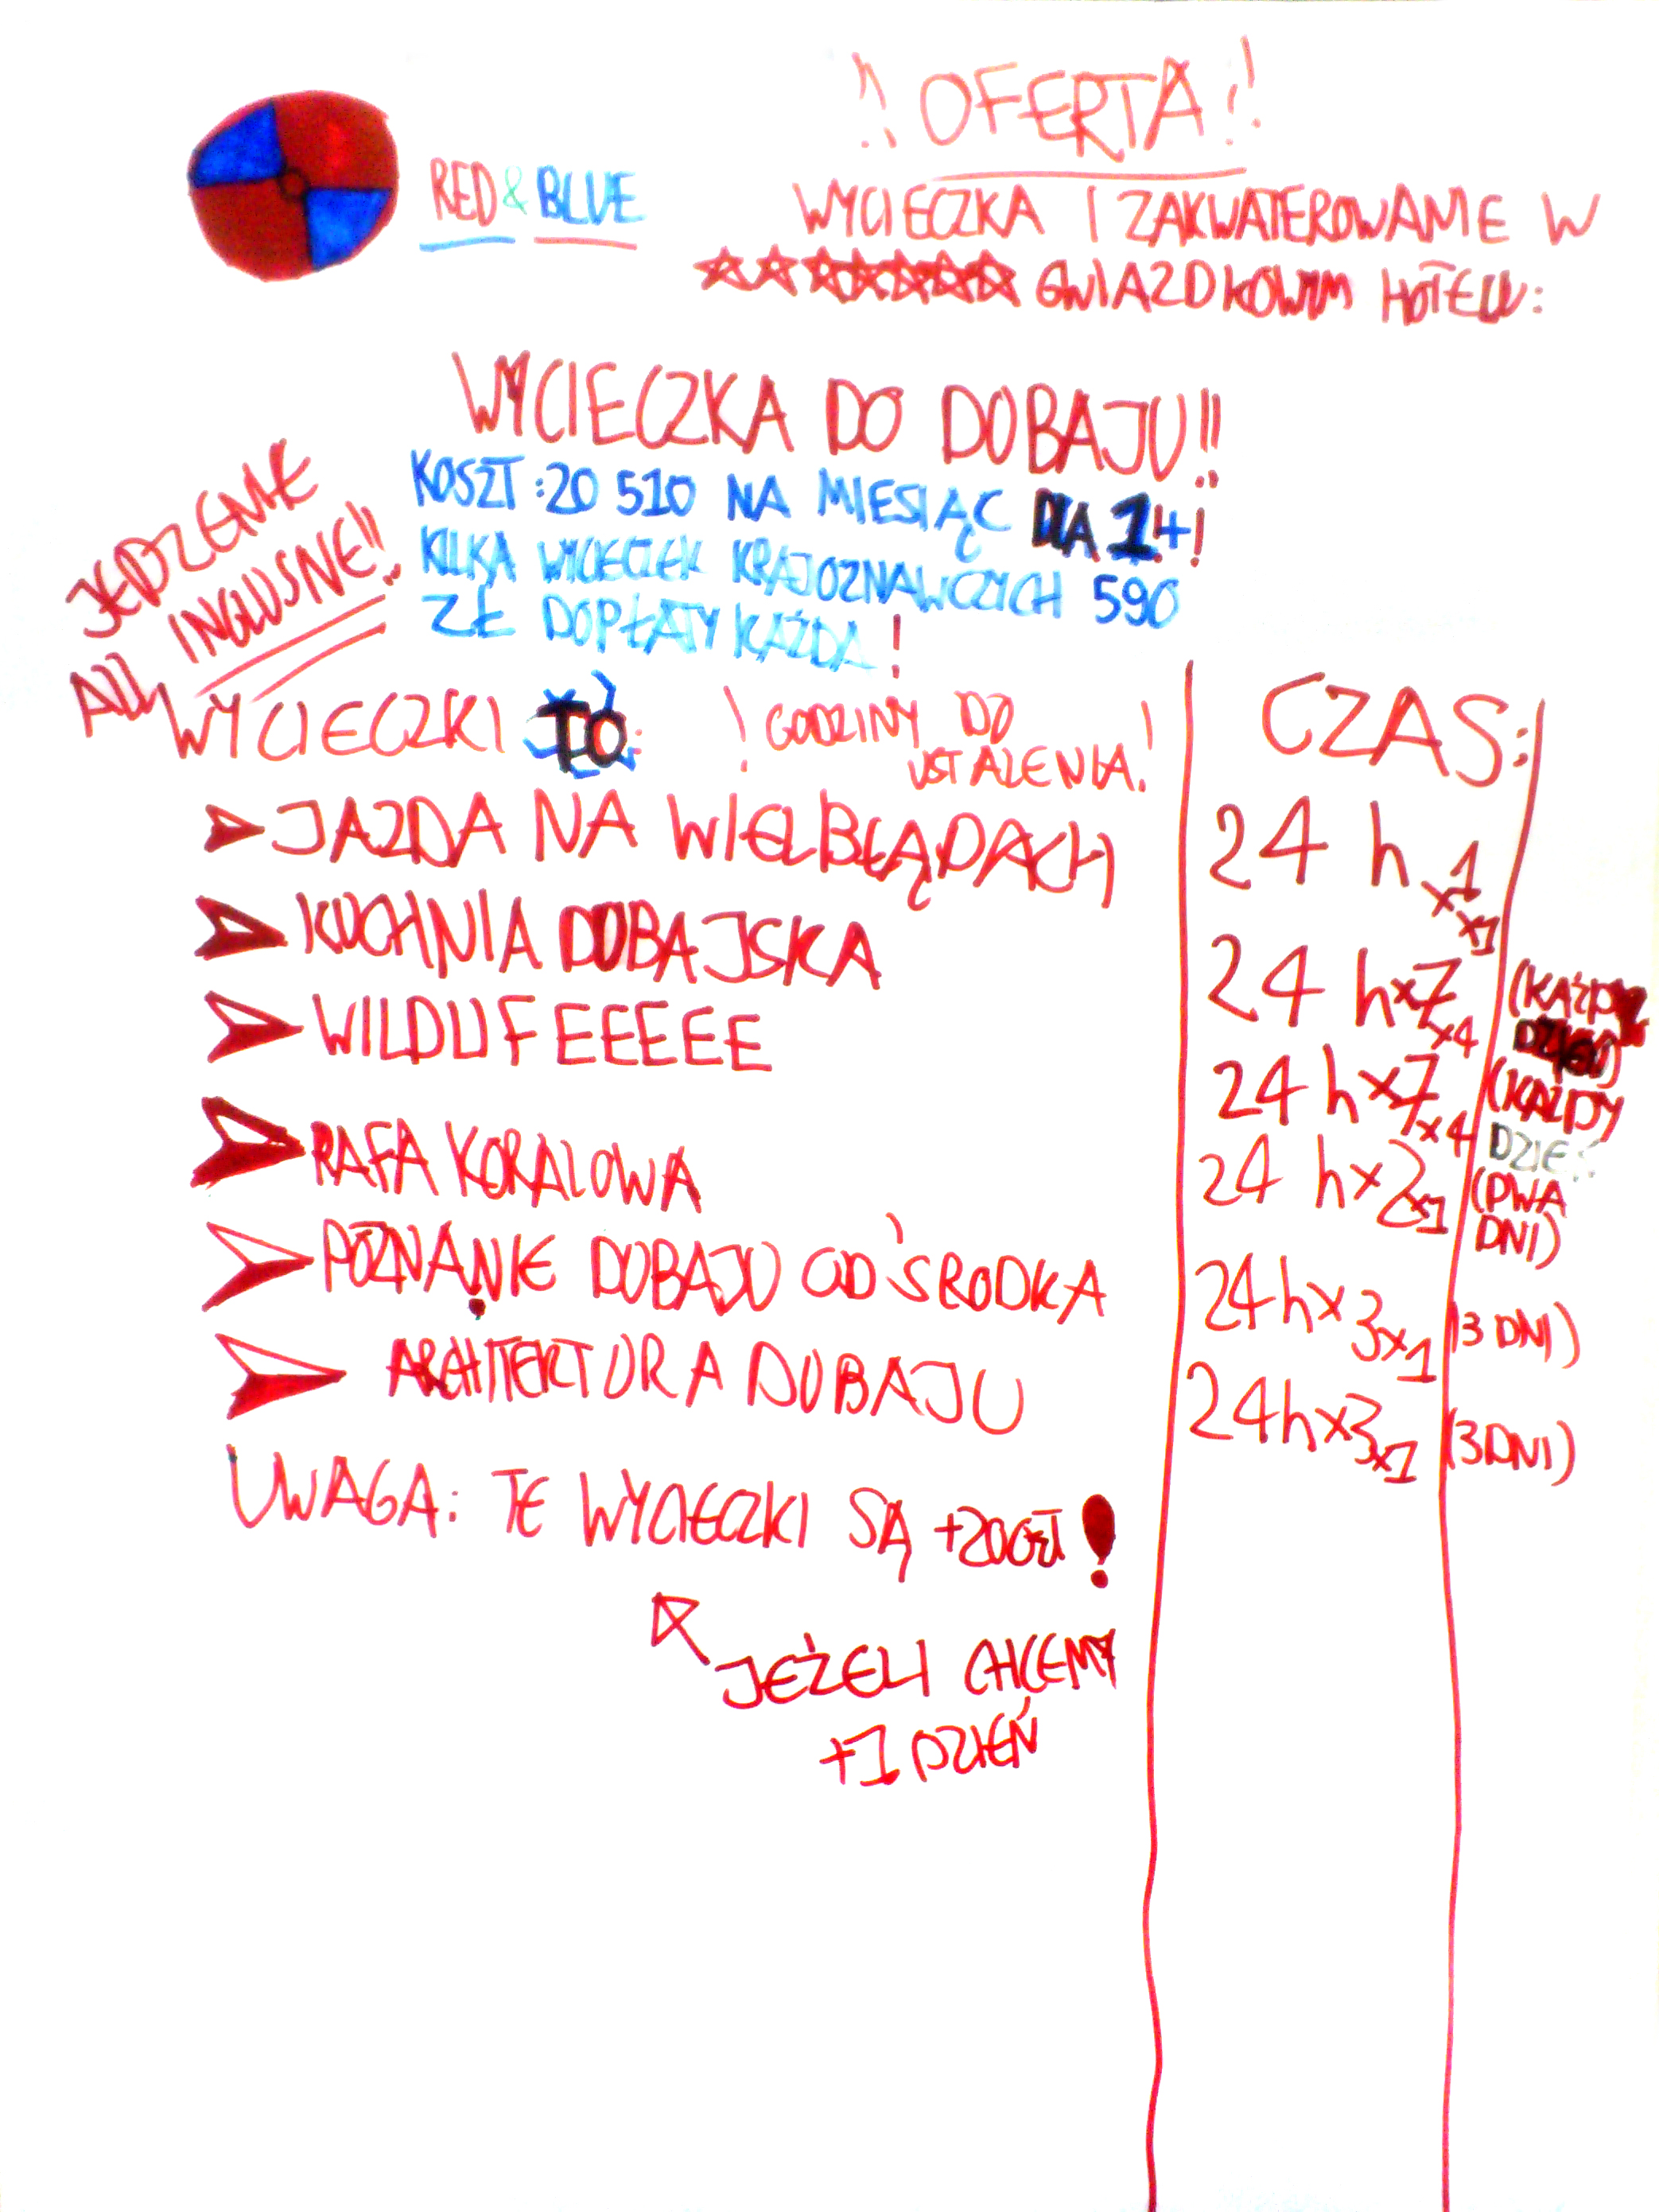 !! OFERTA !!
RED & BLUE
WYCIECZKA I ZAKWATEROWANIE W
GWIAZDKOWYM HOTELU:
WYCIECZKA DO DOBAJU!!
KOSZT: 20 510 NA MIESIĄC DLA 14!
KILKA WYCIECZEK KRAJOZNAWCZYCH 590
ZŁ DOPŁATY KAŻDA!
JEDZENIE
ALL INGLUSNE!!
WYCIECZKI TO:
! GODZINY DO
USTALENIA!
CZAS:
JAZDA NA WIELBŁĄDACH 24 h x1
KUCHNIA DUBAJSKA 24 h x7 x4 (KAŻDY
DZIEŃ)
WILDLIFEEEEE 24 h x7 x4 (KAŻDY
DZIEŃ
RAFA KORALOWA 24 h x2 x1 (DWA
DNI)
POZNANIE DUBAJU OD ŚRODKA 24h x 3 x1 (3 DNI)
ARCHITEKTURA DUBAJU 24h x3 x1 (3 DNI)
UWAGA: TE WYCIECZKI SĄ +200zł!
JEŻELI CHCEMY
+1 DZIEŃ